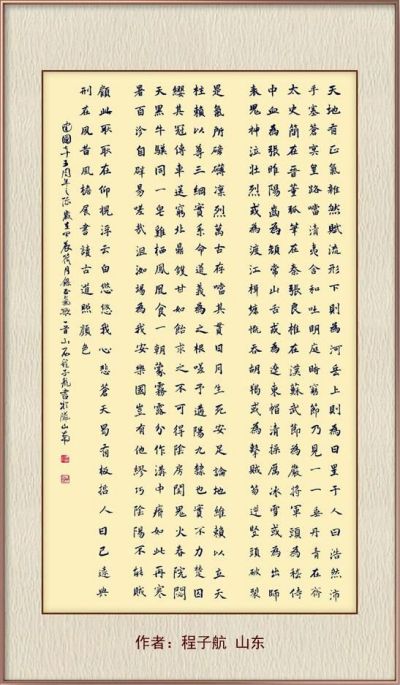 天地有正氣雜然賦流形下則為河岳上則為日星于人曰浩然沛
乎塞蒼冥皇路當清夷含和吐明庭時窮節乃見一一垂丹青在齊
太史簡在晉董狐筆在秦張良椎在漢蘇武節為嚴將軍頭為嵇侍
中血為張睢陽齒為顏常山舌或為遼東帽清操厲冰雪或為出師
表鬼神泣壯烈或為渡江楫慷慨吞胡羯或為擊賊笏逆豎頭破裂
是氣所磅礴凛烈萬古存當其貫日月生死安足論地維賴以立天
柱賴以尊三綱實系命道義為之根嗟予遘陽九隸也實不力楚囚
纓其冠傳車送窮北鼎鑊甘如飴求之不可得陰房闃鬼火春院閟
天黑牛驥同一皂雞栖鳳凰食一朝蒙霧露分作溝中瘠如此再寒
暑百沴自辟易嗟哉沮洳場為我安樂國豈有他繆巧陰陽不能賊
顧此耿耿在仰視浮雲白悠悠我心悲蒼天曷有極哲人日已遠典
刑在夙昔風檐展書讀古道照顏色
周年之際歲在甲辰荷月錄正氣歌一首山石程子航書於
作者：程子航 山东